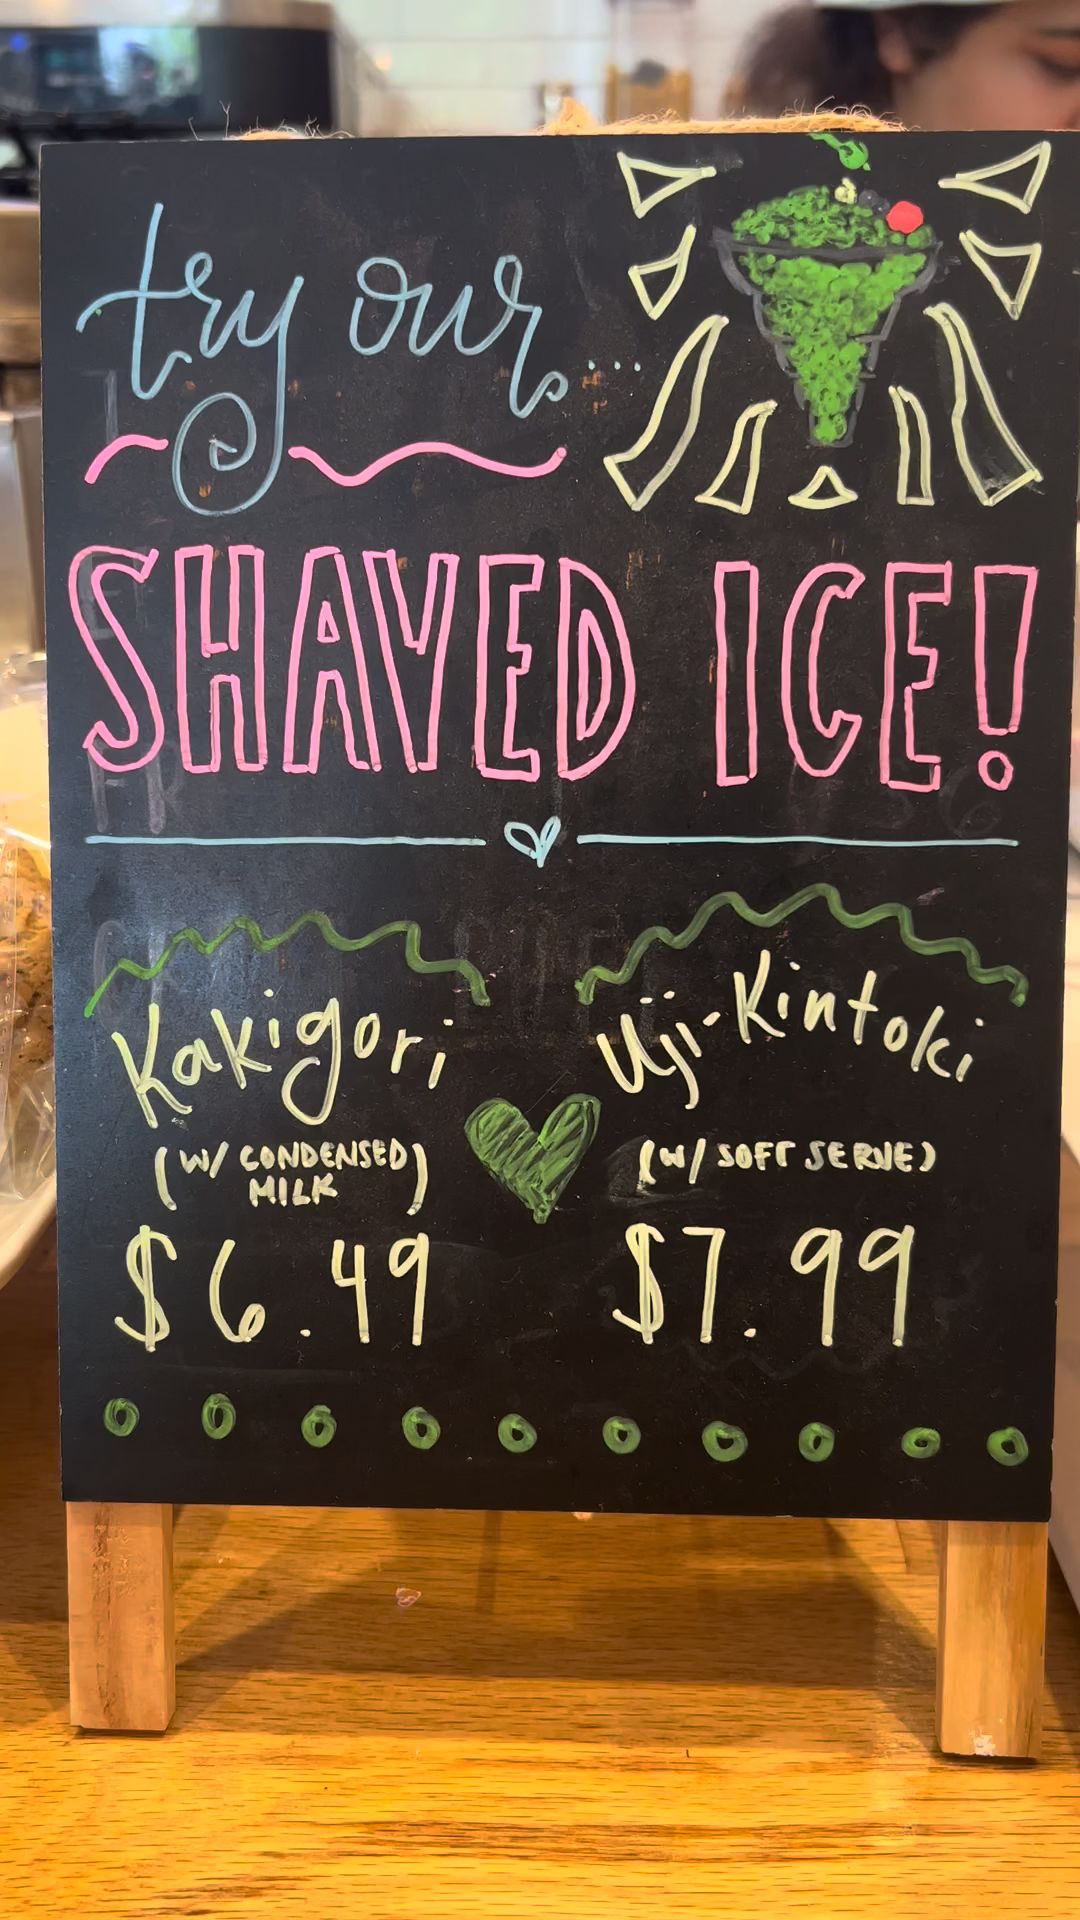 try our...
SHAVED ICE!
Kakigori
(W/ CONDENSED
MILK)
$6.49
Uji-Kintoki
(W/ SOFT SERVE)
$7.99